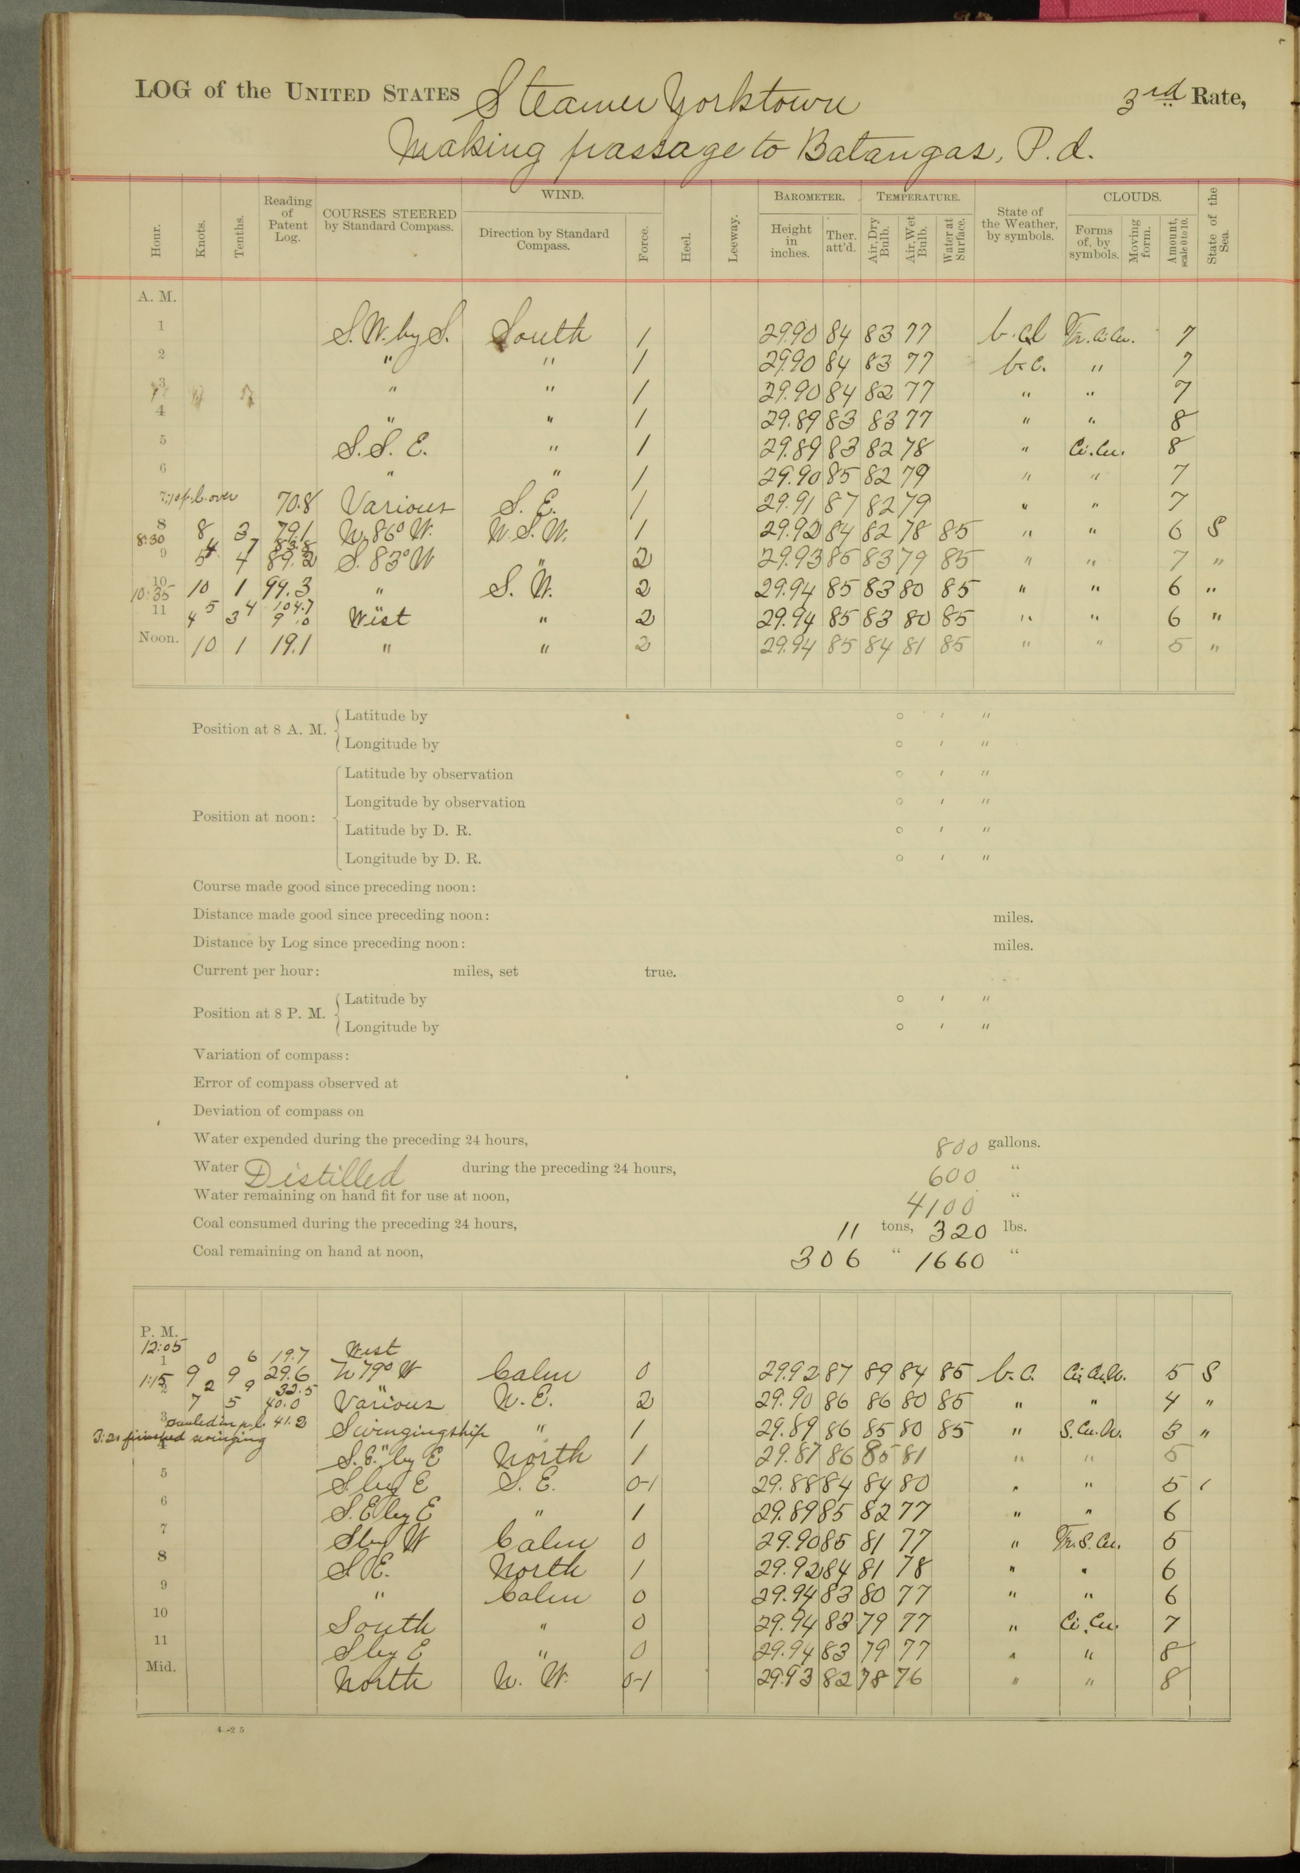 LOG of the UNITED STATES Steamer Yorktown 3rd Rate,
Making passage to Batangas, P.I.
Hour. Knots. Tenths. Reading of Patent Log. COURSES STEERED by Standard Compass. WIND. Direction by Standard Compass. Force. Heel. Leeway. BAROMETER. Height in inches. Ther. att'd. TEMPERATURE. Air, Dry Bulb. Air, Wet Bulb. Water at Surface. State of the Weather, by symbols. CLOUDS. Forms of, by symbols. Moving form. Amount, scale 0 to 10. State of the Sea.
A. M.
1 S.W. by S. South 1 29.90 84 83 77 Ci.Cu. 7
2 " " 1 29.90 84 83 77 b.c. " 7
3 " " 1 29.90 84 82 77 " " 7
4 " " 1 29.89 83 83 77 " " 8
5 S.S.E. " 1 29.89 83 82 78 " Ci.Cu. 8
6 " " 1 29.90 85 82 79 " " 7
7:10 p.l. over 70.8 Various S.E. 1 29.91 87 82 79 " " 7
8 8 3 79.1 N. 86° W. W.S.W. 1 29.92 84 82 78 85 " " 6 S
8:30 4 7 83.8
9 5 4 89.2 S. 83° W " 2 29.93 86 83 79 85 " " 7 "
10 10 1 99.3 " S.W. 2 29.94 85 83 80 85 " " 6 "
10:35 5 4 104.7
11 4 3 9.0 West " 2 29.94 85 83 80 85 " " 6 "
Noon. 10 1 19.1 " " 2 29.94 85 84 81 85 " " 5 "
Position at 8 A. M. Latitude by ° ′ ″
Longitude by ° ′ ″
Position at noon: Latitude by observation ° ′ ″
Longitude by observation ° ′ ″
Latitude by D. R. ° ′ ″
Longitude by D. R. ° ′ ″
Course made good since preceding noon:
Distance made good since preceding noon: miles.
Distance by Log since preceding noon: miles.
Current per hour: miles, set true.
Position at 8 P. M. Latitude by ° ′ ″
Longitude by ° ′ ″
Variation of compass:
Error of compass observed at
Deviation of compass on
Water expended during the preceding 24 hours, 800 gallons.
Water Distilled during the preceding 24 hours, 600 "
Water remaining on hand fit for use at noon, 4100 "
Coal consumed during the preceding 24 hours, 11 tons, 320 lbs.
Coal remaining on hand at noon, 306 " 1660 "
P. M.
12:05 0 6 19.7 West
1 9 9 29.6 N 79° W Calm 0 29.92 87 89 84 85 b.c. Ci.Cu. 5 S
1:15 2 9 32.5 "
2 7 5 40.0 Various N.E. 2 29.90 86 86 80 85 " " 4 "
3 hauled in p.l. 41.2 Swinging ship " 1 29.89 86 85 80 85 " S.Cu. 3 "
3:21 finished swinging "
4 S.E. by E North 1 29.87 86 85 81 " " 5
5 S by E S.E. 0-1 29.88 84 84 80 " " 5
6 S.E by E " 1 29.89 85 82 77 " " 6
7 S by W Calm 0 29.90 85 81 77 " S.Cu. 5
8 S.E. North 1 29.92 84 81 78 " " 6
9 " Calm 0 29.94 83 80 77 " " 6
10 South " 0 29.94 83 79 77 " Ci.Cu. 7
11 S by E " 0 29.94 83 79 77 " " 8
Mid. North N.W. 0-1 29.93 82 78 76 " " 8
4-25